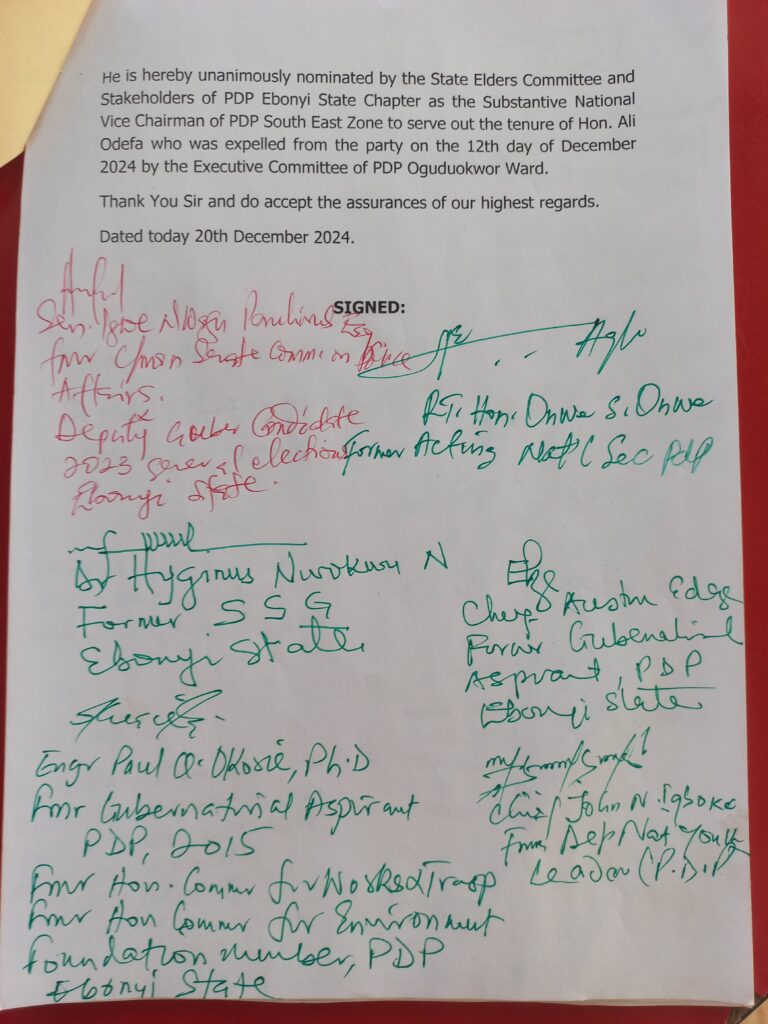 He is hereby unanimously nominated by the State Elders Committee and
Stakeholders of PDP Ebonyi State Chapter as the Substantive National
Vice Chairman of PDP South East Zone to serve out the tenure of Hon. Ali
Odefa who was expelled from the party on the 12th day of December
2024 by the Executive Committee of PDP Oguduokwor Ward.
Thank You Sir and do accept the assurances of our highest regards.
Dated today 20th December 2024.
SIGNED:
Sen. Igwe Nwagu Esq
fmr C/man Senate Comm. on
Affairs.
Deputy Guber Candidate
2023 general elections
Ebonyi State.
RT. Hon. Onwe S. Onwe
Former Acting Nat'l Sec PDP
Dr Hyginus N
Former SSG
Ebonyi State
Austin Edeze
Gubernatorial
Aspirant, PDP
Ebonyi State
Engr Paul O. Okorie, Ph.D
Fmr Gubernatorial Aspirant
PDP, 2015
Fmr Hon. Commr for Works & Transp
Fmr Hon Commr for Environment
Foundation member, PDP
Ebonyi State
Chief John N. Igboke
Fmr Dep Nat Youth
Leader (P.D.P